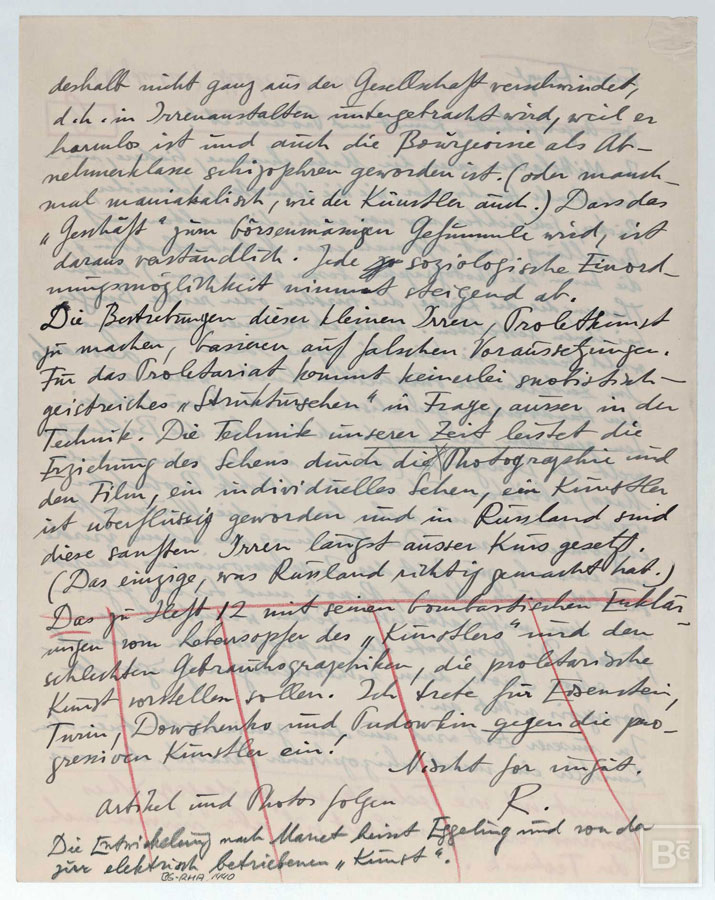 deshalb nicht ganz aus der Gesellschaft verschwindet,
d.h. in Irrenanstalten untergebracht wird, weil er
harmlos ist und auch die Bourgeoisie als Ab-
nehmerklasse schizophren geworden ist. (oder manch-
mal maniakalisch, wie der Künstler auch.) Dass das
„Geschäft" zum börsenmässigen Gefummle wird, ist
daraus verständlich. Jede soziologische Einord-
nungsmöglichkeit nimmt steigend ab.
Die Bestrebungen dieser kleinen Irren, Proletkunst
zu machen, basieren auf falschen Voraussetzungen.
Für das Proletariat kommt keinerlei snobistisch-
geistreiches „Struktursehen" in Frage, ausser in der
Technik. Die Technik unserer Zeit leistet die
Erziehung des Sehens durch die Photographie und
den Film, ein individuelles Sehen, ein Künstler
ist überflüssig geworden und in Russland sind
diese sanften Irren längst ausser Kurs gesetzt.
(Das einzige, was Russland richtig gemacht hat.)
Das zu Heft 12 mit seinen bombastischen Erklär-
ungen vom Lebensopfer des „Künstlers" und den
schlechten Gebrauchsgraphiken, die proletarische
Kunst vorstellen sollen. Ich trete für Eisenstein,
Turin, Dowshenko und Pudowkin gegen die pro-
gressiven Künstler ein!
Nischt for ungut.
Artikel und Photos folgen R.
Die Entwickelung nach Manet heisst Eggeling und von da
zur elektrisch betriebenen „Kunst".
BG-RHA 1440
BG